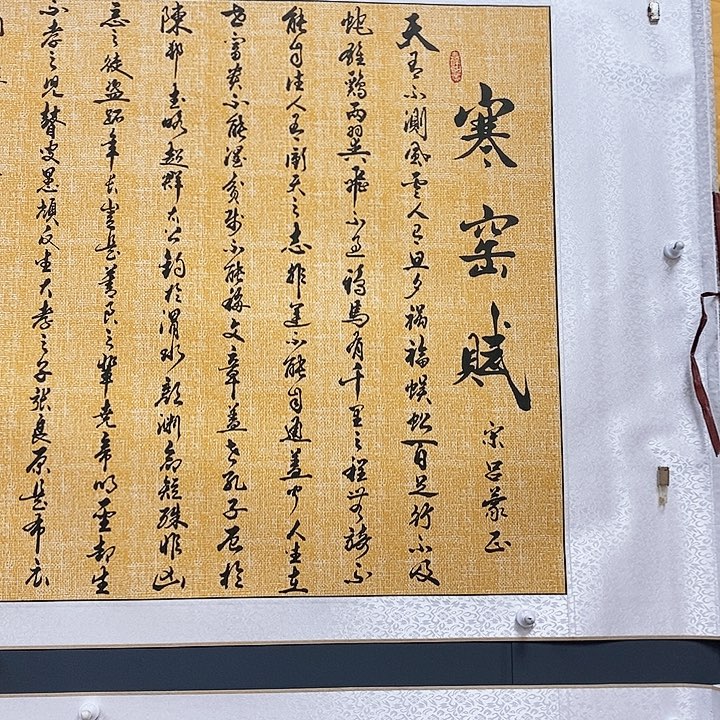 寒窑賦
宋呂蒙正
天有不測風雲人有旦夕禍福蜈蚣百足行不及
蛇雄鷄兩翼飛不過鴉馬有千里之程無騎不
能自往人有衝天之志非運不能自通蓋聞人生在
世富貴不能淫貧賤不能移文章蓋世孔子厄於
陳邦武略超群太公釣於渭水顏淵命短殊非凶
惡之徒盜跖年長豈是善良之輩堯帝明聖却生
不孝之兒瞽叟愚頑反生大孝之子張良原是布衣